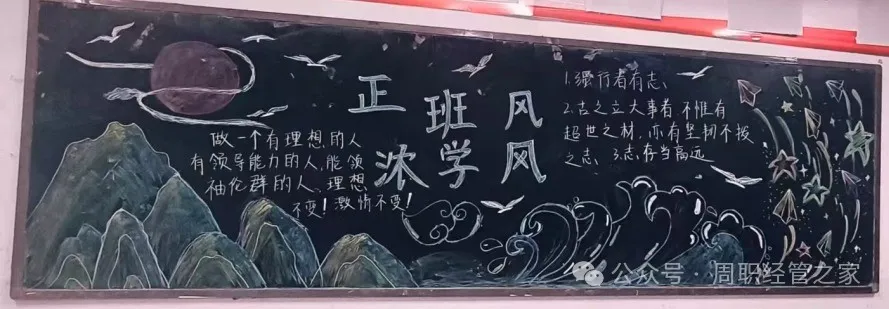 正班风
浓学风
做一个有理想的人
有领导能力的人,能领
袖伦群的人、理想
不变!激情不变!
1.强行者有志、
2.古之立大事者 不惟有
超世之材,亦有坚韧不拔
之志、3.志存当高远
公众号·周职经管之家